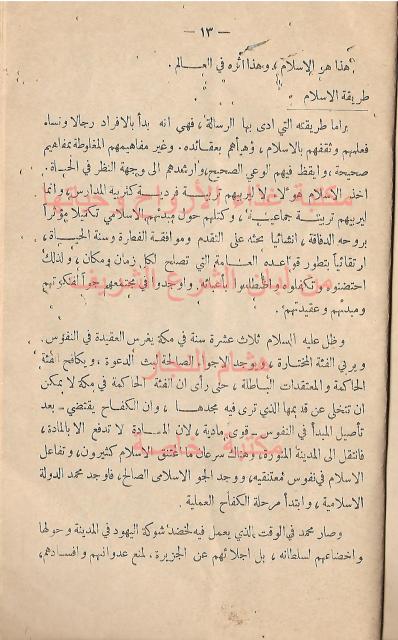 — ١٣ —
هذا هو الاسلام، وهذا أثره في العالم.
طريقة الاسلام
واما طريقته التي ادى بها الرسالة، فهي انه بدأ بالافراد رجالا ونساء
فعلمهم وثقفهم بالاسلام، وهيأهم بعقائده. وغير مفاهيمهم المغلوطة بمفاهيم
صحيحة، وايقظ فيهم الوعي الصحيح، وارشدهم الى وجهة النظر في الحياة.
اخذ الاسلام هؤلاء لا ليربيهم تربية فردية كتربية المدارس، وانما
ليربيهم تربية جماعية، وكتلهم حول مبدئهم الاسلامي تكتيلا مؤثراً
بروحه الدفاقة، انشائيا بحثه على التقدم وموافقة الفطرة وسنة الحياة،
ارتقائياً بتطور قواعده العامة التي تصلح لكل زمان ومكان، ولذلك
احتضنوه وتكفلوه واضطلعوا باعبائه واوجدوا في مجتمعهم جواً لفكرتهم
ومبدئهم وعقيدتهم.
وظل عليه السلام ثلاث عشرة سنة في مكة يغرس العقيدة في النفوس.
ويربي الفئة المختارة، ويوجد الاجواء الصالحة لبث الدعوة، ويكافح الفئة
الحاكمة والمعتقدات الباطلة، حتى رأى ان الفئة الحاكمة في مكة لا يمكن
ان تتخلى عن قديمها الذي ترى فيه مجدها، وان الكفاح يقتضي - بعد
تأصيل المبدأ في النفوس - قوى مادية، لان المادة لا تدفع الا بالمادة،
فانتقل الى المدينة المنورة، وهناك سرعان ما اعتنق الاسلام كثيرون، وتفاعل
الاسلام في نفوس معتنقيه، ووجد الجو الاسلامي الصالح، فاوجد محمد الدولة
الاسلامية، وابتدأ مرحلة الكفاح العملية.
وصار محمد في الوقت الذي يعمل فيه لخضد شوكة اليهود في المدينة وحولها
واخضاعهم لسلطانه، بل اجلائهم عن الجزيرة، لمنع عدوانهم وافسادهم،
مكتبة غذاء الأرواح وحياتها
من أدلة الشرع الشريف
هشام النجار
مكتبة خاصة